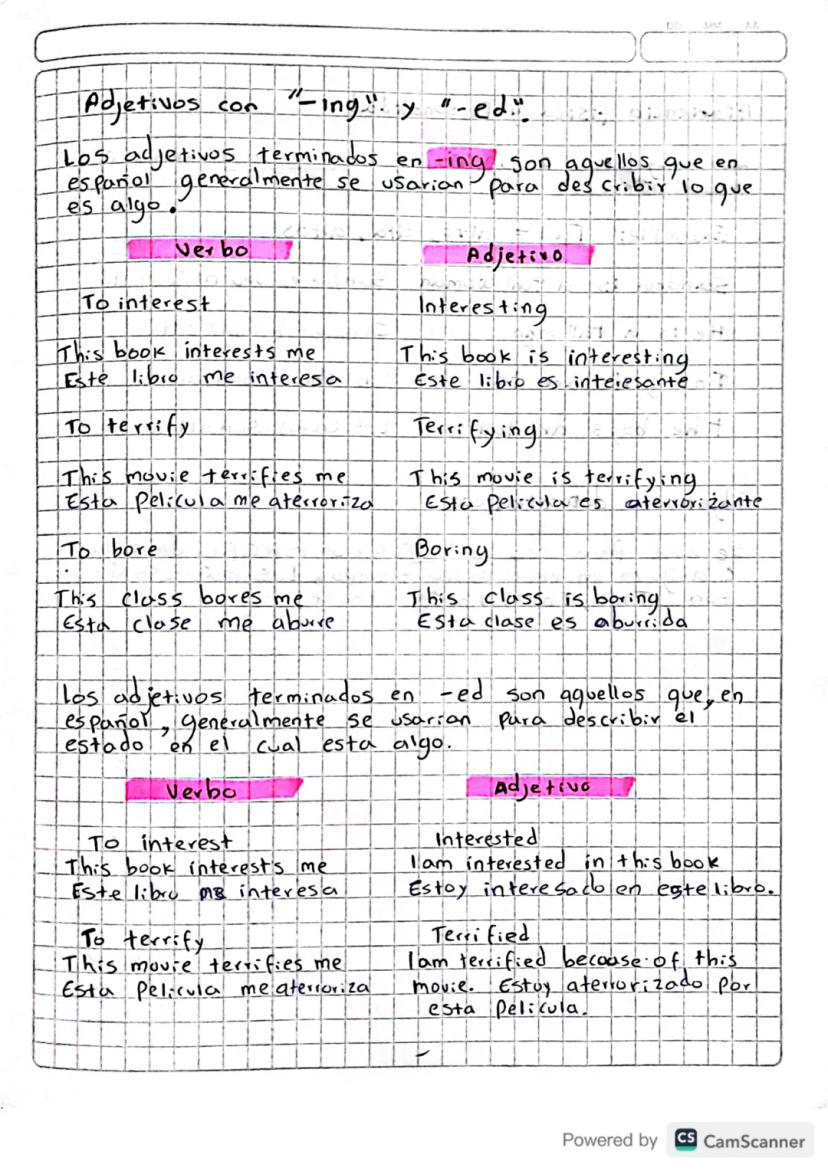 DD MM AA
Adjetivos con "-ing" y "-ed".
Los adjetivos terminados en -ing son aquellos que en
español generalmente se usarian para describir lo que
es algo.
Verbo Adjetivo
To interest Interesting
This book interests me This book is interesting
Este libro me interesa Este libro es interesante
To terrify Terrifying
This movie terrifies me This movie is terrifying
Esta Película me aterroriza Esta película es aterrorizante
To bore Boring
This class bores me This class is boring
Esta clase me aburre Esta clase es aburrida
Los adjetivos terminados en -ed son aquellos que, en
español, generalmente se usarian para describir el
estado en el cual esta algo.
Verbo Adjetivo
To interest Interested
This book interests me I am interested in this book
Este libro me interesa Estoy interesado en este libro.
To terrify Terrified
This movie terrifies me I am terrified because of this
Esta Película me aterroriza movie. Estoy aterrorizado por
esta Película.
Powered by CS CamScanner